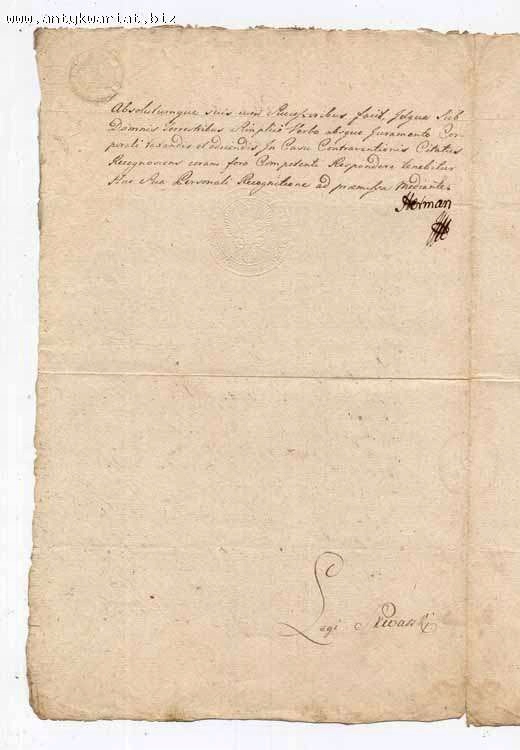 www.antykwariat.biz
Absolutumque suis cum Successoribus facit Idque Sub
Damnis terrestribus Simplici Verbo absque Juramento Cor
porali taxandis et edicendis In Casu Contraventionis Citatus
Recognoscens coram foro Competenti Respondere tenebitur
Hac Sua Personali Recognitione ad præmissa Mediante
Herman
Legi